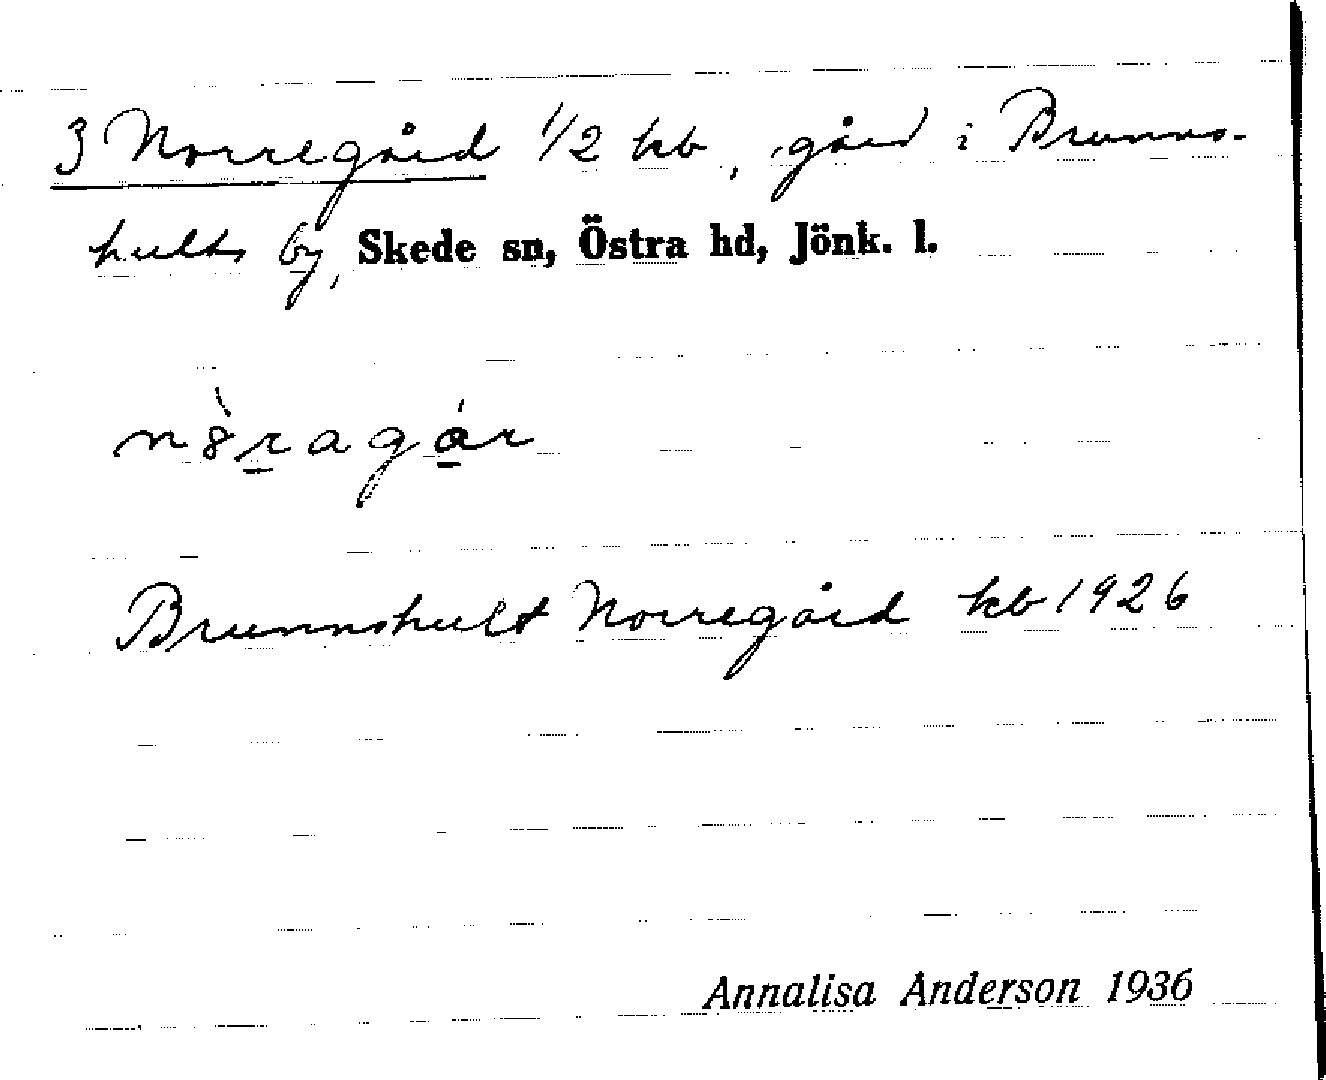 3 Norregård 1/2 kb, gård i Brunns-
hults by, Skede sn, Östra hd, Jönk. l.
n8̀ragár
Brunnshult Norregård kb 1926
Annalisa Anderson 1936